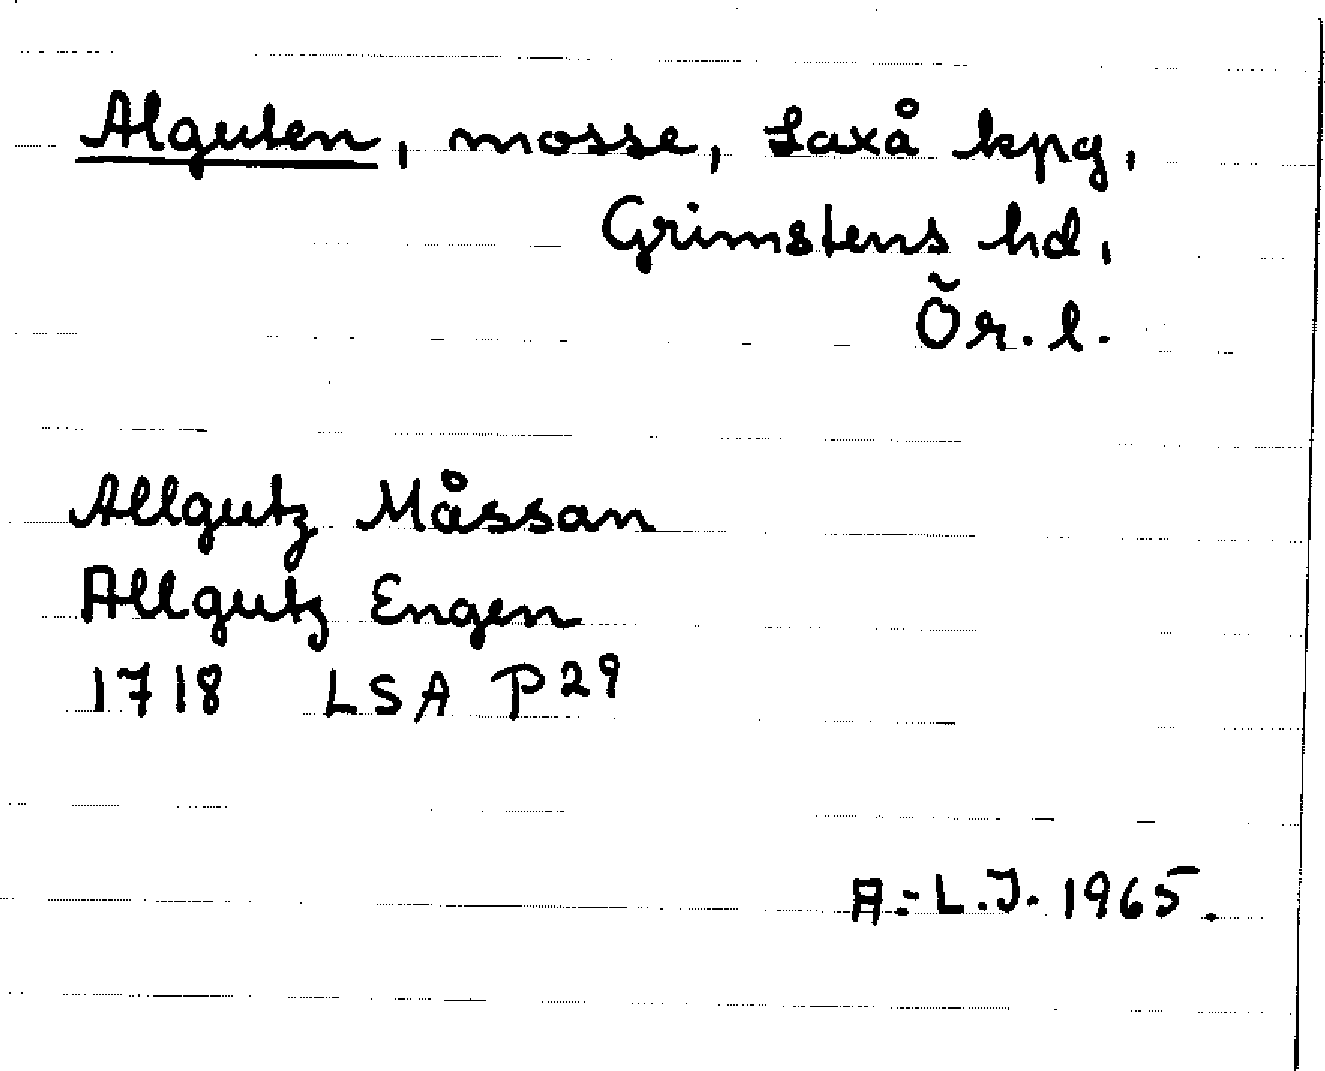 Alguten, mosse, Laxå kpg,
Grimstens hd,
Ör. l.
Allgutz Måssan
Allgutz Engen
1718 LSA P29
A.-L.J. 1965.